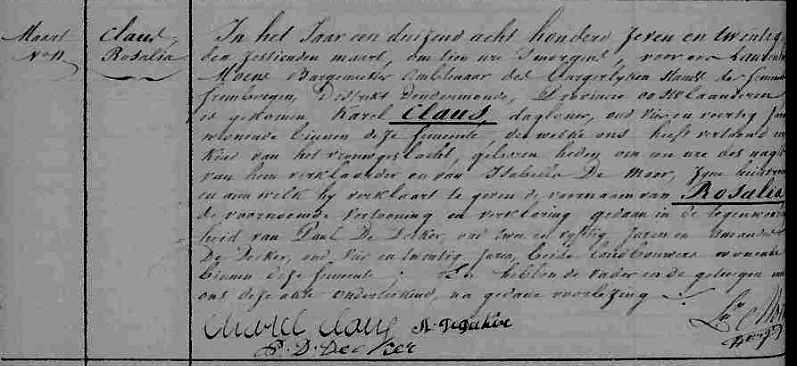 Maart
No 11
Claus,
Rosalia
In het Jaar een duizend acht honderd zeven en twintig
den zestienden maart, om tien ure 's morgens, voor ons
Moens Burgemeester Ambtenaar des Burgerlyken Stands der gemeente
Grembergen, Distrikt Dendermonde, Provincie oostvlaanderen
is gekomen Karel Claus, daglooner, oud vier en veertig Jaren
woonende binnen deze gemeente de welke ons heeft vertoond een
Kind van het vrouwgeslacht, geboren heden om een ure des nagts
van hem verklaarder en van Isabella De Moor, zyne huisvrouw
en aan welk hy verklaart te geven de voornaam van Rosalia
de voornoemde vertooning en verklaring gedaan in de tegenwoor
heid van Paul De Decker, oud twee en vyftig Jaren en Amandus
De Decker, oud vier en twintig Jaren, beide landbouwers woonende
binnen deze gemeente; En hebben de vader en de getuigen met
ons deze akte onderteekend, na gedane voorlezing.
Charel Claus
P. D. Decker